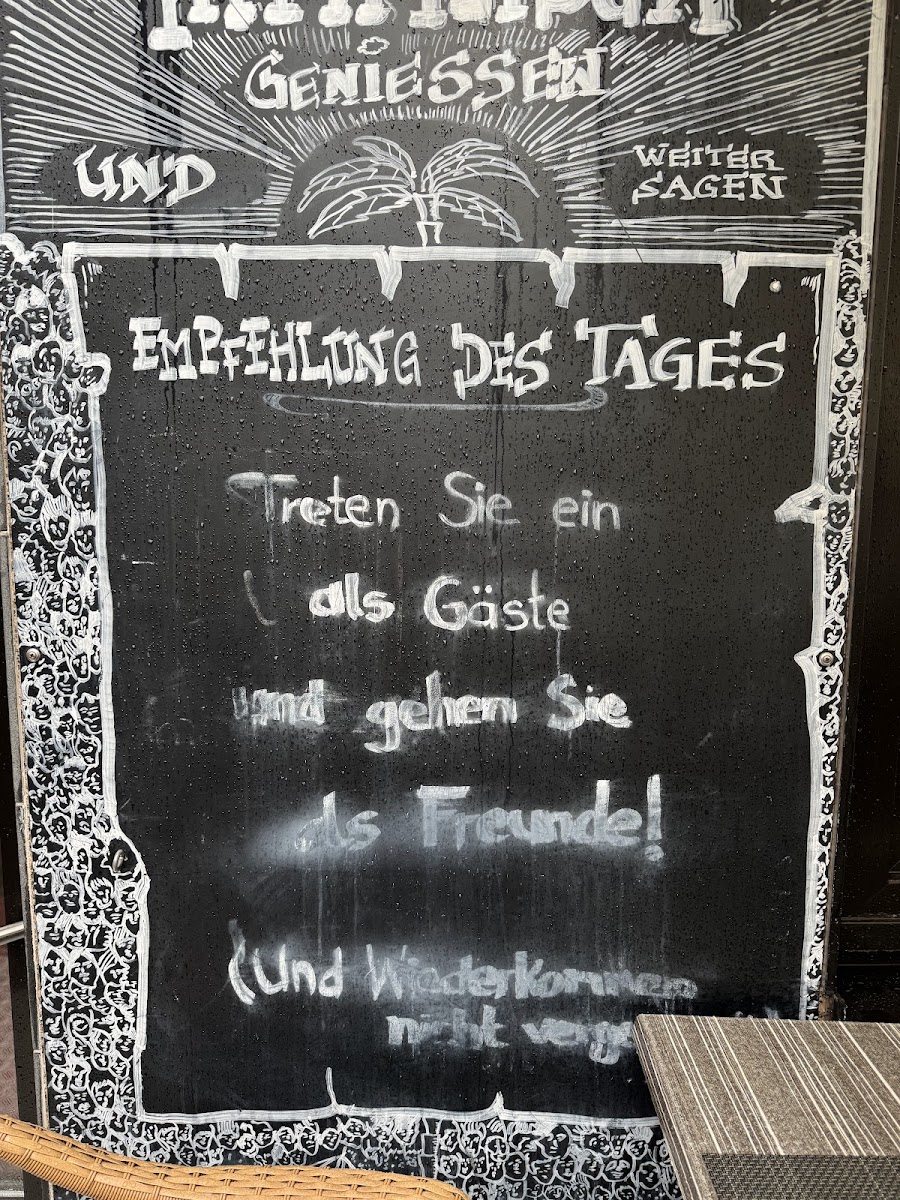 GENIESSEN
UND
WEITER
SAGEN
EMPFEHLUNG DES TAGES
Treten Sie ein
als Gäste
und gehen Sie
als Freunde!
(Und Wiederkommen
nicht